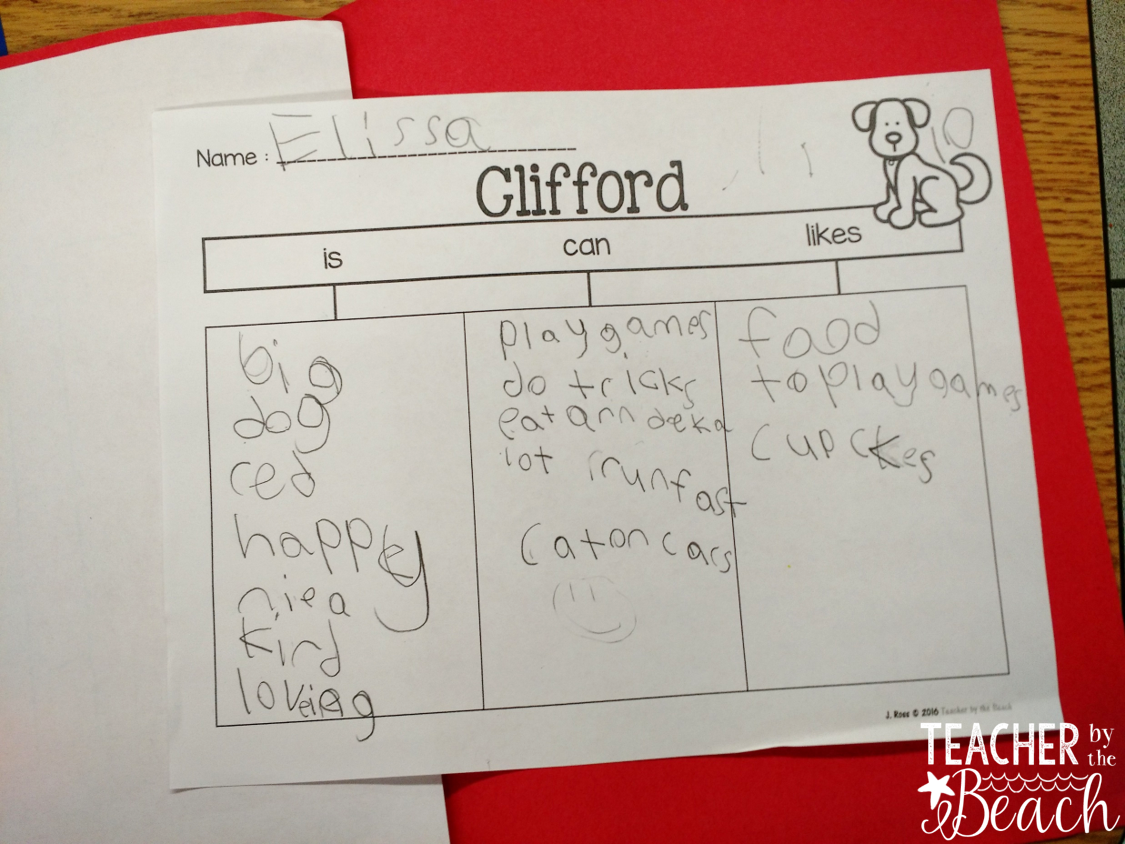 Name : Elissa
10
Clifford
is can likes
big
dog
red
happy
niea
kind
loveing
play games
do tricks
eat ann
lot irun fast
Eat on cars
food
to play games
cupckes
J. Ross © 2016 Teacher by the Beach
TEACHER by the Beach